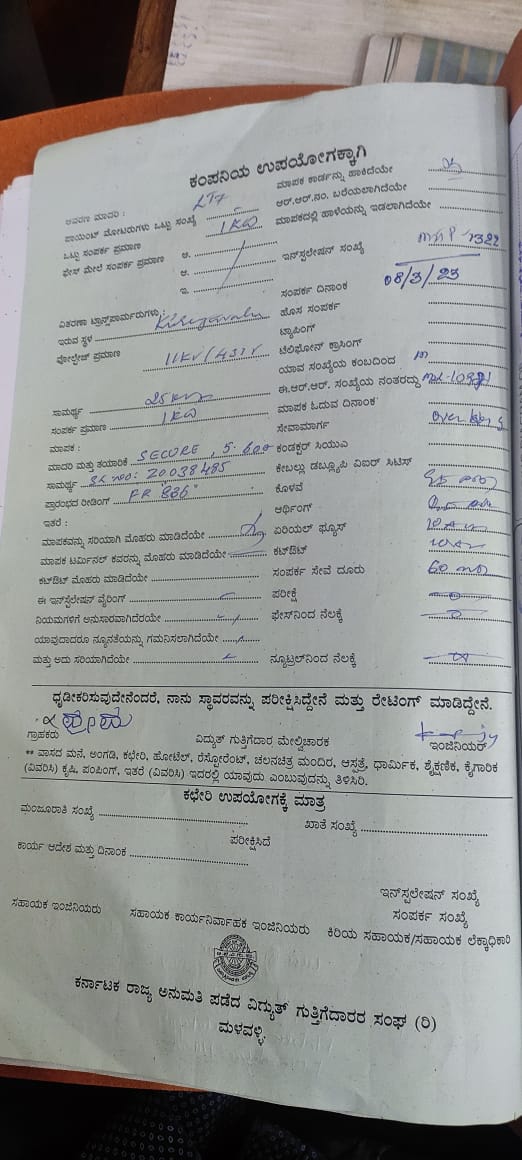 ಕಂಪನಿಯ ಉಪಯೋಗಕ್ಕಾಗಿ
ಆವರಣ ಮಾದರಿ : LT7
ಪಾಯಿಂಟ್ ಮೋಟರುಗಳು ಒಟ್ಟು ಸಂಖ್ಯೆ
ಒಟ್ಟು ಸಂಪರ್ಕ ಪ್ರಮಾಣ 1KW
ಫೇಸ್ ಮೇಲೆ ಸಂಪರ್ಕ ಪ್ರಮಾಣ ಅ.
ಆ.
ಇ.
ವಿತರಣಾ ಟ್ರಾನ್ಸ್‌ಫಾರ್ಮರುಗಳು :
ಇರುವ ಸ್ಥಳ Kirugavalu
ವೋಲ್ಟೇಜ್ ಪ್ರಮಾಣ 11KV/433V
ಸಾಮರ್ಥ್ಯ 25 KVA
ಸಂಪರ್ಕ ಪ್ರಮಾಣ 1KW
ಮಾಪಕ :
ಮಾದರಿ ಮತ್ತು ತಯಾರಿಕೆ SECURE,
ಸಾಮರ್ಥ್ಯ SL NO: 20038485
ಪ್ರಾರಂಭದ ರೀಡಿಂಗ್ FR "836"
ಇತರೆ :
ಮಾಪಕವನ್ನು ಸರಿಯಾಗಿ ಮೊಹರು ಮಾಡಿದೆಯೇ
ಮಾಪಕ ಟರ್ಮಿನಲ್ ಕವರನ್ನು ಮೊಹರು ಮಾಡಿದೆಯೇ
ಕಟೌಟ್ ಮೊಹರು ಮಾಡಿದೆಯೇ
ಈ ಇನ್‌ಸ್ಪಲೇಷನ್ ವೈರಿಂಗ್
ನಿಯಮಗಳಿಗೆ ಅನುಸಾರವಾಗಿದೆರೆಯೇ
ಯಾವುದಾದರೂ ನ್ಯೂನತೆಯನ್ನು ಗಮನಿಸಲಾಗಿದೆಯೇ
ಮತ್ತು ಅದು ಸರಿಯಾಗಿದೆಯೇ
ಮಾಪಕ ಕಾರ್ಡನ್ನು ಹಾಕಿದೆಯೇ
ಆರ್.ಆರ್.ನಂ. ಬರೆಯಲಾಗಿದೆಯೇ
ಮಾಪಕದಲ್ಲಿ ಹಾಳೆಯನ್ನು ಇಡಲಾಗಿದೆಯೇ
ಇನ್‌ಸ್ಪಲೇಷನ್ ಸಂಖ್ಯೆ 1322
ಸಂಪರ್ಕ ದಿನಾಂಕ 08/3/23
ಹೊಸ ಸಂಪರ್ಕ
ಟ್ಯಾಪಿಂಗ್
ಟೆಲಿಫೋನ್ ಕ್ರಾಸಿಂಗ್
ಯಾವ ಸಂಖ್ಯೆಯ ಕಂಬದಿಂದ
ಈ.ಆರ್.ಆರ್. ಸಂಖ್ಯೆಯ ನಂತರದ್ದು
ಮಾಪಕ ಓದುವ ದಿನಾಂಕ
ಸೇವಾಮಾರ್ಗ
ಕಂಡಕ್ಟರ್ ಸಿಯುಎ
ಕೇಬಲ್ಲು ಡಬ್ಲ್ಯೂಪಿ ವಿಐರ್ ಸಿಟಿಸ್
ಕೊಳವೆ
ಆರ್ಥಿಂಗ್
ಏರಿಯಲ್ ಫ್ಯೂಸ್
ಕಟ್‌ಔಟ್
ಸಂಪರ್ಕ ಸೇವೆ ದೂರು
ಪರೀಕ್ಷೆ
ಫೇಸ್‌ನಿಂದ ನೆಲಕ್ಕೆ
ನ್ಯೂಟ್ರಲ್‌ನಿಂದ ನೆಲಕ್ಕೆ
ಧೃಡೀಕರಿಸುವುದೇನೆಂದರೆ, ನಾನು ಸ್ಥಾವರವನ್ನು ಪರೀಕ್ಷಿಸಿದ್ದೇನೆ ಮತ್ತು ರೇಟಿಂಗ್ ಮಾಡಿದ್ದೇನೆ.
ಗ್ರಾಹಕರು ವಿದ್ಯುತ್ ಗುತ್ತಿಗೆದಾರ ಮೇಲ್ವಿಚಾರಕ ಇಂಜಿನಿಯರ್
** ವಾಸದ ಮನೆ, ಅಂಗಡಿ, ಕಛೇರಿ, ಹೋಟೆಲ್, ರೆಸ್ಟೋರೆಂಟ್, ಚಲನಚಿತ್ರ ಮಂದಿರ, ಆಸ್ಪತ್ರೆ, ಧಾರ್ಮಿಕ, ಶೈಕ್ಷಣಿಕ, ಕೈಗಾರಿಕ
(ವಿವರಿಸಿ) ಕೃಷಿ, ಪಂಪಿಂಗ್, ಇತರೆ (ವಿವರಿಸಿ) ಇದರಲ್ಲಿ ಯಾವುದು ಎಂಬುವುದನ್ನು ತಿಳಿಸಿರಿ.
ಕಛೇರಿ ಉಪಯೋಗಕ್ಕೆ ಮಾತ್ರ
ಮಂಜೂರಾತಿ ಸಂಖ್ಯೆ ಖಾತೆ ಸಂಖ್ಯೆ
ಪರೀಕ್ಷಿಸಿದೆ
ಕಾರ್ಯ ಆದೇಶ ಮತ್ತು ದಿನಾಂಕ
ಇನ್‌ಸ್ಪಲೇಷನ್ ಸಂಖ್ಯೆ
ಸಂಪರ್ಕ ಸಂಖ್ಯೆ
ಸಹಾಯಕ ಇಂಜಿನಿಯರು ಸಹಾಯಕ ಕಾರ್ಯನಿರ್ವಾಹಕ ಇಂಜಿನಿಯರು ಕಿರಿಯ ಸಹಾಯಕ/ಸಹಾಯಕ ಲೆಕ್ಕಾಧಿಕಾರಿ
ಕರ್ನಾಟಕ ರಾಜ್ಯ ಅನುಮತಿ ಪಡೆದ ವಿದ್ಯುತ್ ಗುತ್ತಿಗೆದಾರರ ಸಂಘ (ರಿ)
ಮಳವಳ್ಳಿ.